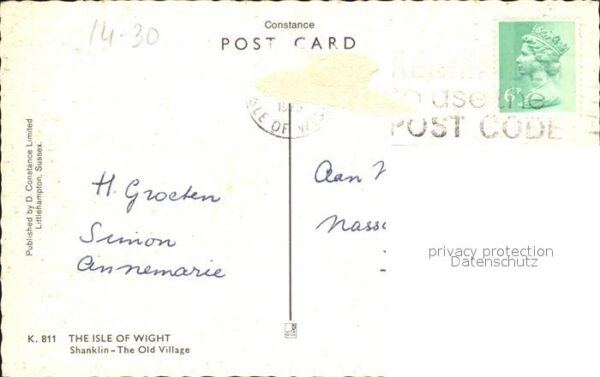 14-30
Constance
POST CARD
ISLE OF
to use the
POST CODE
Published by D. Constance Limited
Littlehampton, Sussex.
H. Grocten
Simon
Annemarie
Aan
privacy protection
Datenschutz
K. 811 THE ISLE OF WIGHT
Shanklin – The Old Village